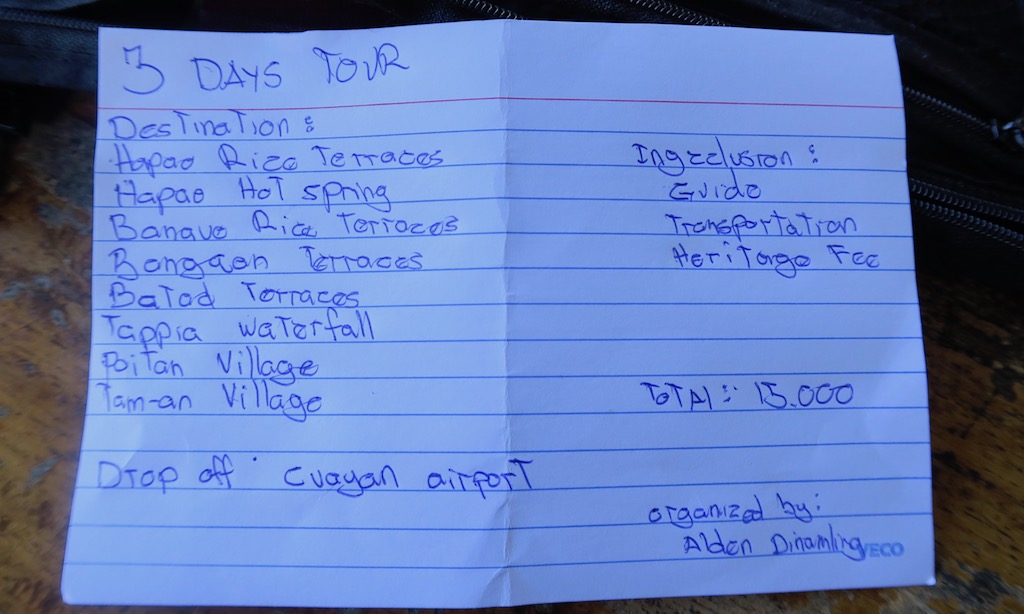 3 DAYS TOUR
Destination :
Hapao Rice Terraces
Hapao Hot spring
Banaue Rice Terraces
Bangaan Terraces
Batad Terraces
Tappia waterfall
Poitan Village
Tam-an Village
Drop off : Cuayan airport
Ingrclusion :
Guide
Transportation
Heritage Fee
TOTAl : 15.000
organized by:
Alden Dinamling
VECO